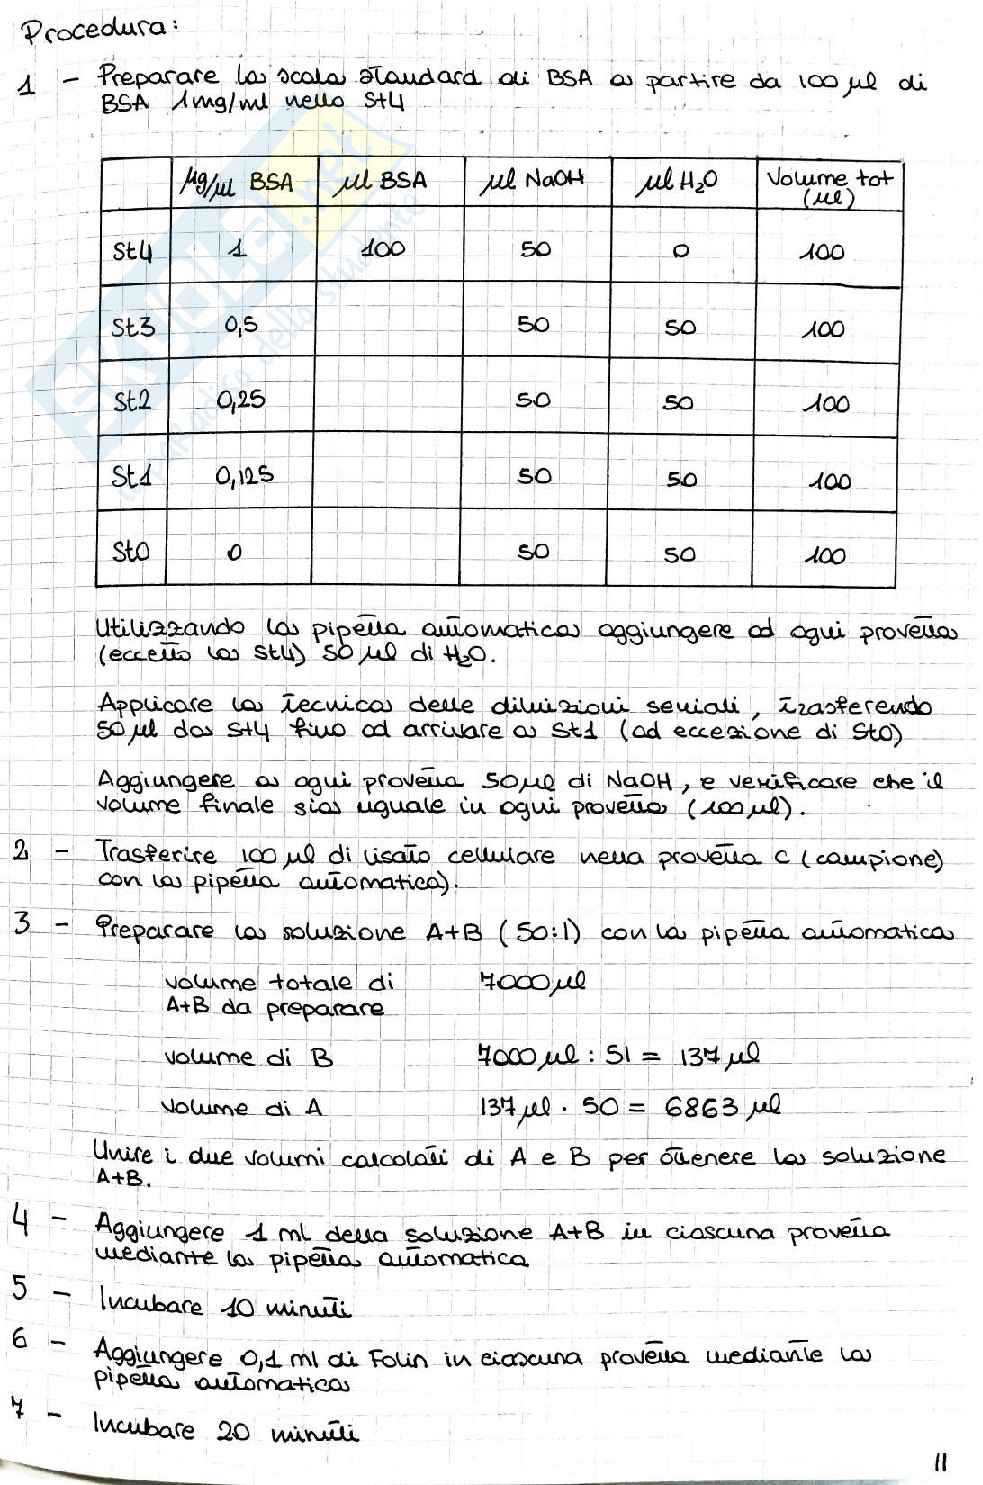 Procedura:
1 - Preparare la scala standard di BSA a partire da 100 µl di
BSA 1mg/ml nello St4
µg/µl BSA	µl BSA	µl NaOH	µl H₂O	Volume tot (µl)
St4	1	100	50	0	100
St3	0,5		50	50	100
St2	0,25		50	50	100
St1	0,125		50	50	100
St0	0		50	50	100
Utilizzando la pipetta automatica aggiungere ad ogni provetta
(eccetto la St4) 50 µl di H₂O.
Applicare la tecnica delle diluizioni seriali, trasferendo
50 µl da St4 fino ad arrivare a St1 (ad eccezione di St0)
Aggiungere a ogni provetta 50µl di NaOH, e verificare che il
volume finale sia uguale in ogni provetta (100 µl).
2 - Trasferire 100 µl di lisato cellulare nella provetta C (campione)
con la pipetta automatica).
3 - Preparare la soluzione A+B (50:1) con la pipetta automatica
volume totale di 7000 µl
A+B da preparare
volume di B 7000 µl : 51 = 137 µl
volume di A 137 µl . 50 = 6863 µl
Unire i due volumi calcolati di A e B per ottenere la soluzione
A+B.
4 - Aggiungere 1 ml della soluzione A+B in ciascuna provetta
mediante la pipetta automatica
5 - Incubare 10 minuti
6 - Aggiungere 0,1 ml di Folin in ciascuna provetta mediante la
pipetta automatica
7 - Incubare 20 minuti
11